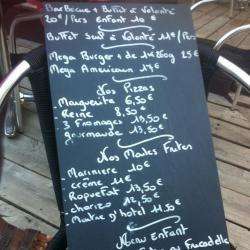 Barbecue + Buffet à volonté
20€/Pers Enfant 10€
Buffet Seul à volonté 11€/Pers
Mega Burger + de 1k200g 25€
Mega Americain 17€
Nos Pizzas
Marguerita 6,50€
Reine 8,50€
3 Fromages 13,50€
gourmande 13,50€
Nos Moules Frites
Marinière 10€
crème 11€
Roquefort 13,50€
chorizo 12,50€
Maitre d'hotel 11,50€
Menu Enfant
Fricadelle